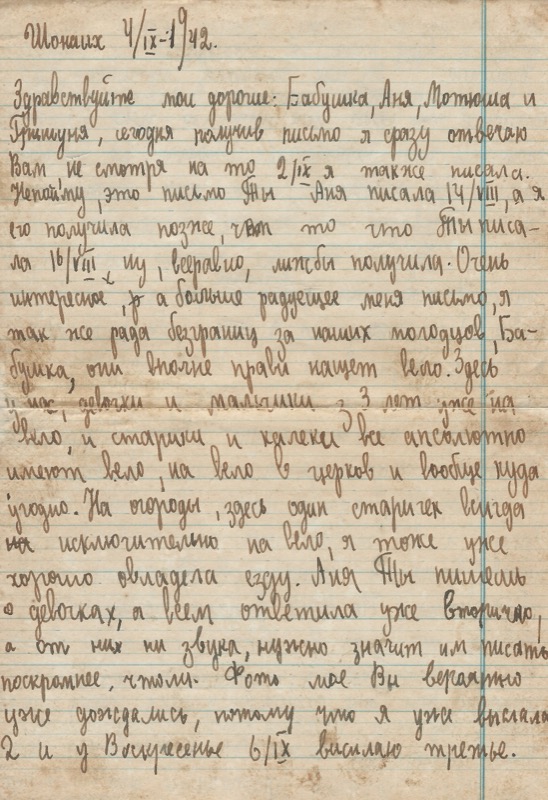 Шонаих 4/IX-1942.
Здравствуйте мои дорогие: Бабушка, Аня, Мотюша и
Гришуня, сегодня получив письмо я сразу отвечаю
Вам, не смотря на то 2/IX я также писала.
Непойму, это письмо Ты Аня писала 14/VIII, а я
его получила позже, чем то что Ты писа-
ла 16/VIII, ну, всеравно, лижбы получила. Очень
интересное, а больше радующее меня письмо, я
так же рада безграниц за наших молодцов, Ба-
бушка, они вполне прави нащет вело. Здесь
у нас, девочки и мальчики з 3 лет уже на
вело, и старики и калеки все апсолютно
имеют вело, на вело в церков и вообще куда
угодно. На огороды, здесь один старичек всигда
на исключительно на вело, я тоже уже
хорошо овладела езду. Аня Ты пишешь
о девочках, а всем ответила уже вторично,
а от них ни звука, нужно значит им писать
поскромнее, чтоли. Фото мое Вы вероятно
уже дождались, потому что я уже выслала
2 и у Воскресенье 6/IX висилаю третье.